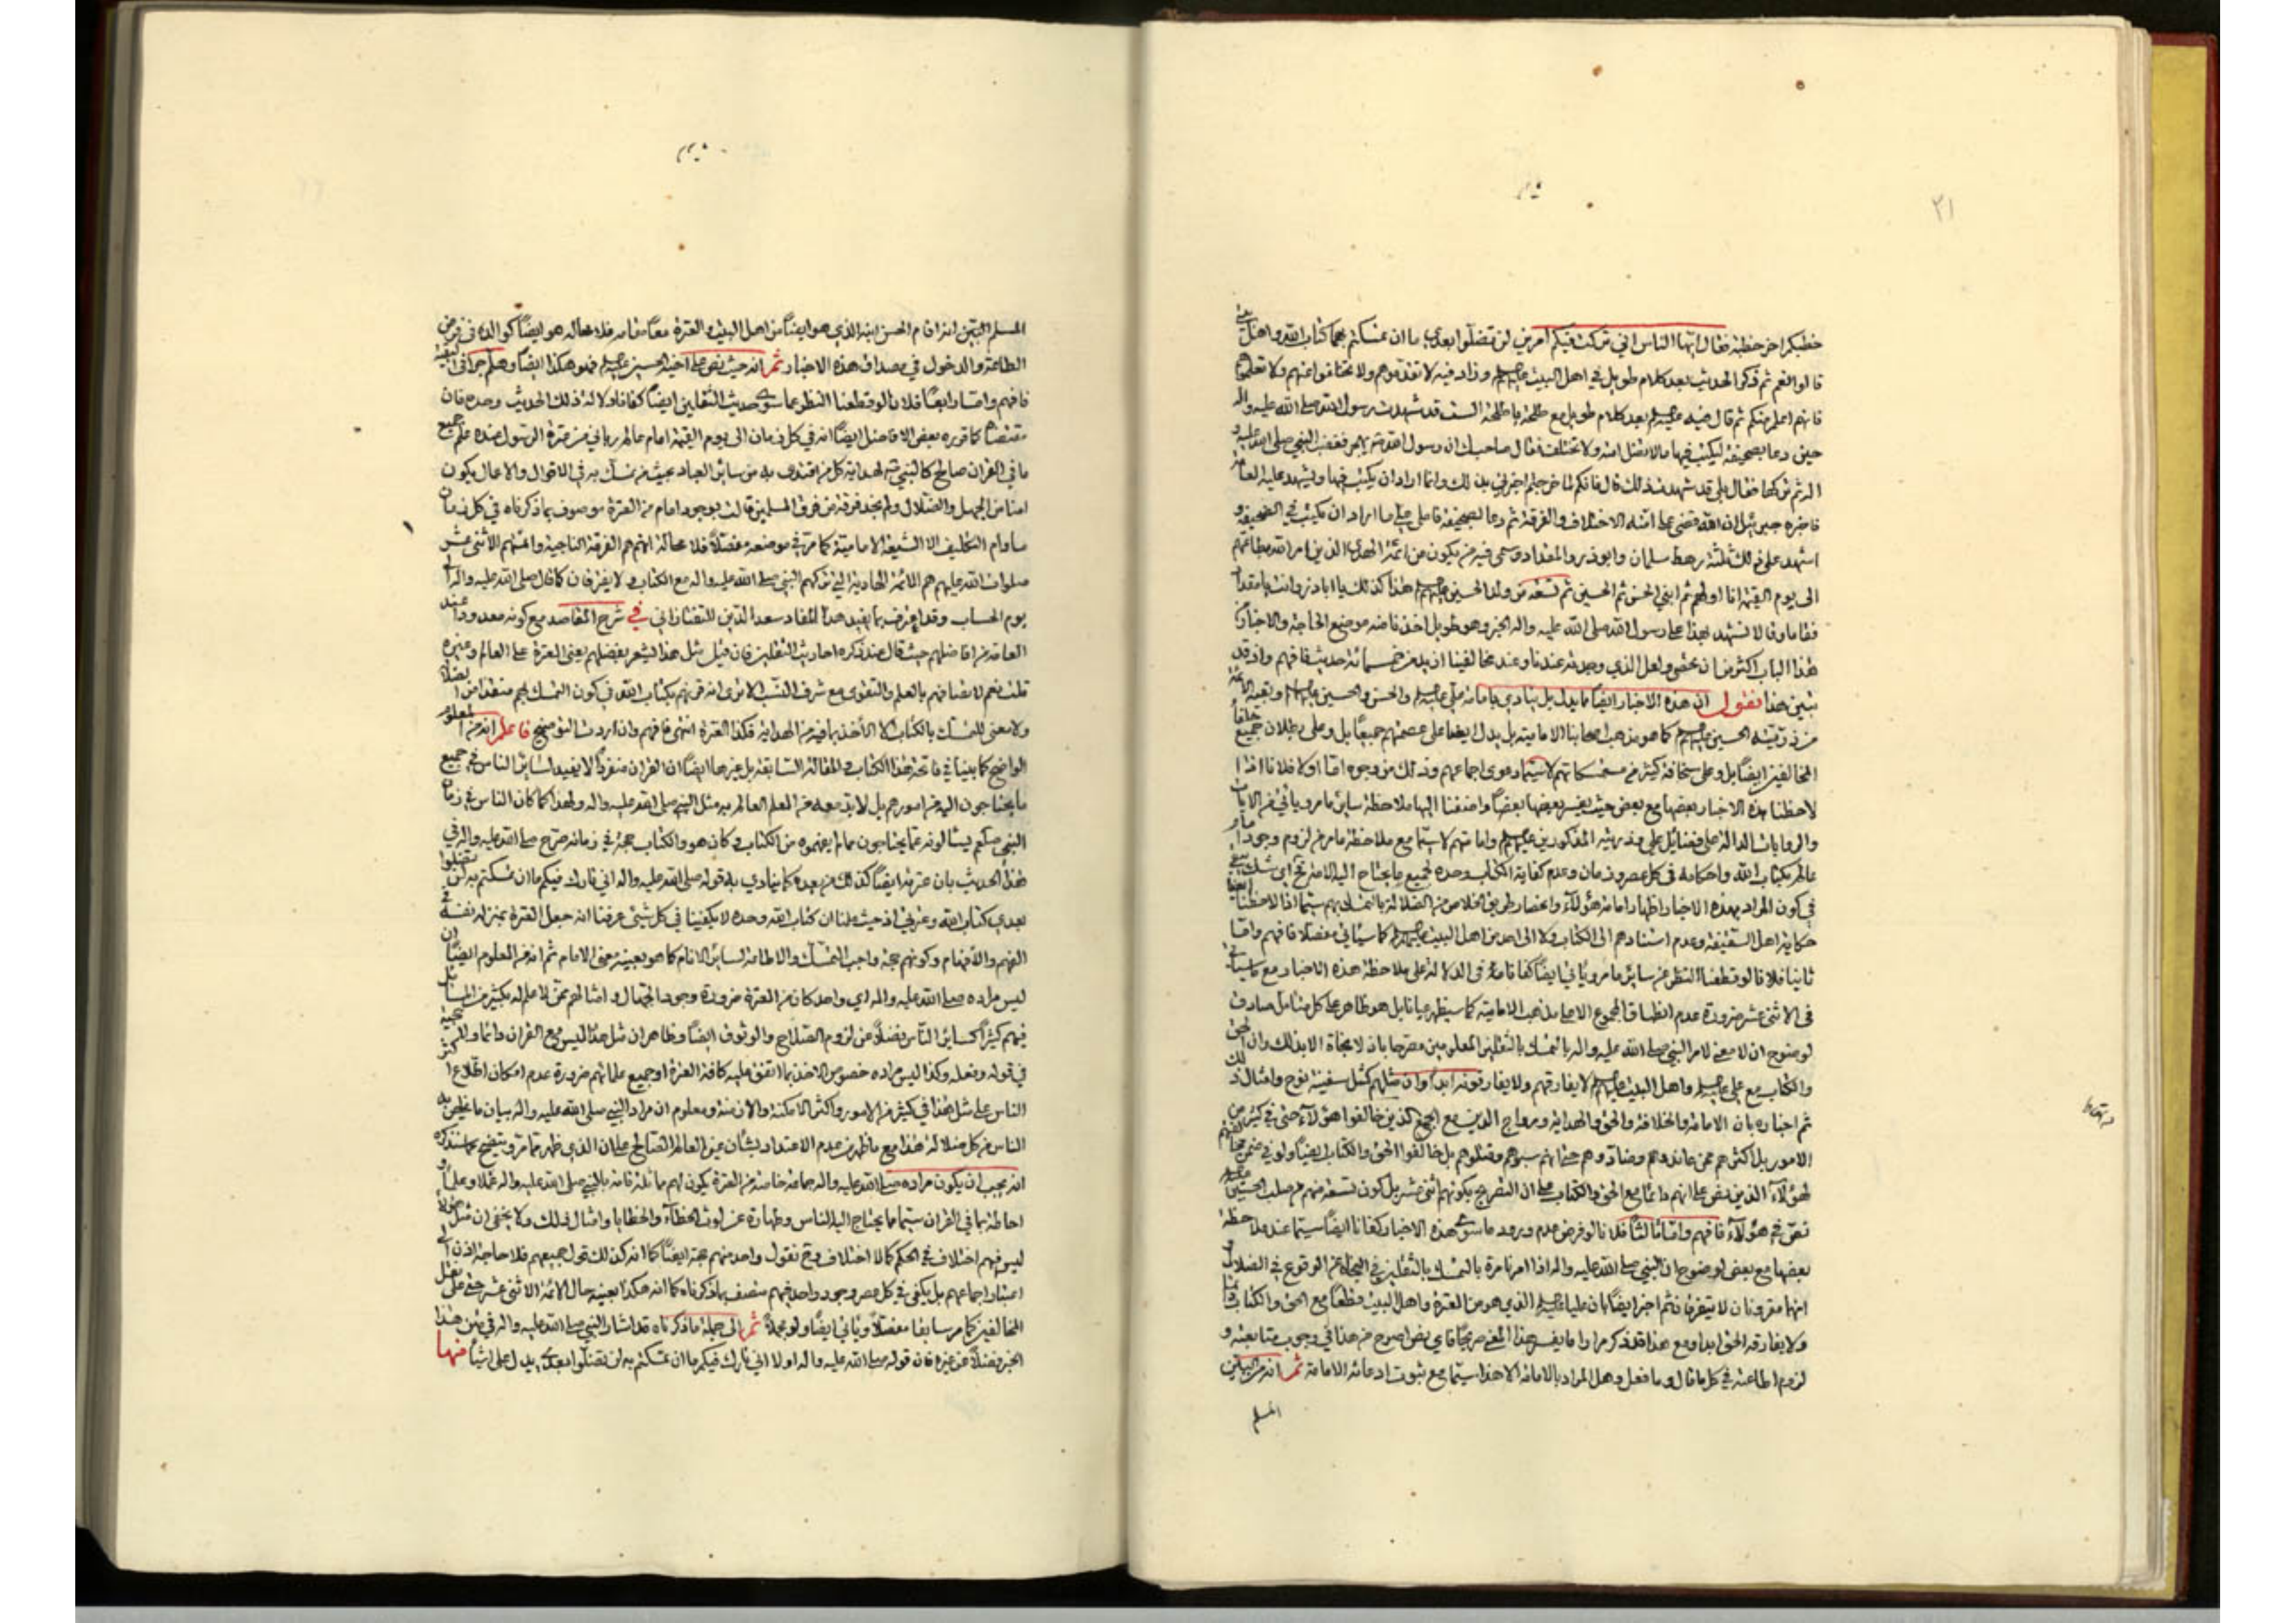 ٢١
خطبكم اخر خطبة فقال ايها الناس اني تركت فيكم امرين لن تضلوا بعدي ما ان تمسكتم بهما كتاب الله واهل
قالوا نعم ثم ذكر الحديث بعد كلام طويل في اهل البيت وزاد فيه لا تقدموهم ولا تخلفوا عنهم ولا تعلموهم
فانهم اعلم منكم ثم قال فيه بعد كلام طويل مع طلحة يا طلحة الست قد شهدت رسول الله صلى الله عليه واله
حين دعا بصحيفة ليكتب فيها ما لا تضل امته ولا تختلف فقال صاحبك ان رسول الله يهجر فغضب النبي صلى الله عليه و
اله ثم تركها فقال بلى قد شهدت ذلك قال فانكم لما خرجتم اخبرني بذلك وانما اراد ان يكتب فيها ويشهد عليه العامة
فاخبره جبرئيل ان الله قضى على امته الاختلاف والفرقة ثم دعا بصحيفة فاملى علي ما اراد ان يكتب في الصحيفة و
اشهد على ذلك ثلثة رهط سلمان وابوذر والمقداد وسمى فيه من يكون من ائمة الهدى الذين امر الله بطاعتهم
الى يوم القيمة انا اولهم ثم ابني الحسن ثم الحسين ثم تسعة من ولد الحسين هذا كذلك يا اباذر وانت يا مقداد
فقاما وقالا نشهد بهذا على رسول الله صلى الله عليه واله الخبر وهو طويل اخذنا منه موضع الحاجة والاخبار في
هذا الباب اكثر من ان تحصى ولعل الذي وجدته عندنا وعند مخالفينا ازيد من خمسمائة حديث فافهم واذ قد
تبين هذا نقول ان هذه الاخبار ايضا مما يدل بل ينادي بامامة علي والحسن والحسين وبقية الائمة
من ذرية الحسين كما هو مذهب اصحابنا الامامية بل يدل ايضا على عصمتهم جميعا بل وعلى بطلان جميع خلفاء
المخالفين ايضا بل وعلى سخافة كثير من متمسكاتهم لا سيما دعوى اجماعهم وذلك من وجوه اما اولا فلانا اذا
لاحظنا هذه الاخبار بعضها مع بعض حيث يفسر بعضها بعضا واضفنا اليها ملاحظة ساير ما مر ويأتي من الايات
والروايات الدالة على فضائل علي وذريته المذكورين وامامتهم لا سيما مع ملاحظة ما مر من لزوم وجود
عالم بكتاب الله واحكامه في كل عصر وزمان وعدم كفاية الكتاب وحده لجميع ما يحتاج اليه الامة لم يبق شك
في كون المراد بهذه الاخبار اظهار امامة هؤلاء وانحصار طريق الخلاص من الضلالة بالتمسك بهم سيما اذا لاحظنا ايضا
حكاية اهل السقيفة وعدم استنادهم الى الكتاب ولا الى احد من اهل البيت كما سيأتي مفصلا فافهم واما
ثانيا فلانا لو قطعنا النظر عن ساير ما مر ويأتي ايضا كفانا في الدلالة على ملاحظة هذه الاخبار مع ما سيأتي
في الاثنى عشر ضرورة عدم انطباق المجموع الا على مذهب الامامية كما سيظهر عيانا بل هو ظاهر على كل متأمل صادق
لوضوح ان لا معنى لامر النبي صلى الله عليه واله بالتمسك بالثقلين المعلومين مصرحا بان لا نجاة الا بذلك وان الحق
والكتاب مع علي واهل البيت لا يفارقهم ولا يفارقونه ابدا وان مثلهم كمثل سفينة نوح وامثال ذلك
ثم اخباره بان الامامة والخلافة والحق والهداية ورواج الدين مع الجمع الذين خالفوا هؤلاء حتى في كثير من
الامور بل اكثرهم ممن عاندوهم وضادوهم حتى انهم سبوهم وقتلوهم بل خالفوا الحق والكتاب ايضا ولو في ضمن مخالفتهم
لهؤلاء الذين نص على انهم دائما مع الحق والكتاب على ان التصريح بكونهم اثنى عشر بل كون تسعة منهم من صلب الحسين
نص في هؤلاء فافهم واما ثالثا فلانا لو فرض عدم ورود ما سوى هذه الاخبار كفانا ايضا سيما عند ملاحظة
بعضها مع بعض لوضوح ان النبي صلى الله عليه واله اذا امر تارة بالتمسك بالثقلين في النجاة عن الوقوع في الضلال و
انهما مقرونان لا يتفرقان ثم اخبر ايضا بان عليا الذي هو من العترة واهل البيت قطعا مع الحق والكتاب
ولا يفارقه الحق ابدا ومع هذا قد ذكر مرارا ما يفسر هذا المعنى صريحا فاي نص اصرح من هذا في وجوب متابعته و
لزوم اطاعته في كل ما قال وما فعل وهل المراد بالامامة الا هذا سيما مع ثبوت ادعائه الامامة ثم انه من البين
المسلم
المسلم البين انه اقام الحسن ابنه الذي هو ايضا من اهل البيت والعترة معا مقامه فلا محالة هو ايضا كوالده في فرض
الطاعة والدخول في مصداق هذه الاخبار ثم انه حيث نص على اخيه الحسين فهو هكذا ايضا وهلم جرا في البقية
فافهم واما رابعا فلانا لو قطعنا النظر عما سوى حديث الثقلين ايضا كفانا دلالة ذلك الحديث وحده فان
مقتضاه كما قرره بعض الافاضل ايضا انه في كل زمان الى يوم القيمة امام عالم رباني من عترة الرسول عنده علم جميع
ما في القران صالح كالنبي لهداية كل من اقتدى به من سائر العباد بحيث من تمسك به في الاقوال والاعمال يكون
امنا من الجهل والضلال ولم نجد فرقة من فرق المسلمين قالت بوجود امام من العترة موصوف بما ذكرناه في كل زمان
ما دام التكليف الا الشيعة الامامية كما مر في موضعه مفصلا فلا محالة انهم هم الفرقة الناجية وائمتهم الاثنى عشر
صلوات الله عليهم هم الائمة الهادية التي تركهم النبي صلى الله عليه واله مع الكتاب لا يفترقان كما قال صلى الله عليه واله الى
يوم الحساب وقد اعترف بما يفيد هذا المفاد سعد الدين التفتازاني في شرح المقاصد مع كونه معدودا عند
العامة من افاضلهم حيث قال عند ذكره احاديث الثقلين فان قيل مثل هذا يشعر بفضلهم يعني العترة على العالم وغيره
قلت نعم لاتصافهم بالعلم والتقوى مع شرف النسب الا ترى انه قرنهم بكتاب الله في كون التمسك بهم منقذا من الضلالة
ولا معنى للتمسك بالكتاب الا الأخذ بما فيه من الهداية فكذا العترة انتهى فافهم وان اردت التوضيح فاعلم انه من المعلوم
الواضح كما بينا في فاتحة هذا الكتاب والمقالة السابقة بل غيرها ايضا ان القران منفردا لا يفيد لسائر الناس في جميع
ما يحتاجون اليه من امورهم بل لا بد معه من المعلم العالم به مثل النبي صلى الله عليه واله ولهذا كما كان الناس في زمان
النبي صلعم يسألونه عما يحتاجون مما لم يفهموه من الكتاب وكان هو والكتاب حجة في زمانه صرح صلى الله عليه واله في
هذا الحديث بان عترته ايضا كذلك من بعده كما ينادي به قوله صلى الله عليه واله اني تارك فيكم ما ان تمسكتم به لن تضلوا
بعدي كتاب الله وعترتي اذ حيث علمنا ان كتاب الله وحده لا يكفينا في كل شيء عرفنا انه جعل العترة بمنزلة نفسه في
الفهم والأفهام وكونهم حجة واجب التمسك والاطاعة لسائر الانام كما هو بعينه معنى الامام ثم انه من المعلوم ايضا ان
ليس مراده صلى الله عليه واله اي واحد كان من العترة ضرورة وجود الجهال وامثالهم ممن لا علم له بكثير من المسائل
فيهم كثيرا كسائر الناس فضلا عن لزوم الصلاح والوثوق ايضا وظاهر ان مثل هذا ليس مع القران دائما ولا حجية
في قوله وفعله وكذا ليس مراده خصوص الاخذ بما اتفق عليه كافة العترة او جميع علمائهم ضرورة عدم امكان اطلاع اكثر
الناس على مثل هذا في كثير من الامور واكثر الامكنة والازمنة ومعلوم ان مراد النبي صلى الله عليه واله بيان ما يخلص به
الناس من كل ضلالة هذا مع ما ظهر من عدم الاعتداد بشأن غير العالم الصالح على ان الذي ظهر مما مر ويتضح مما سنذكره
انه يجب ان يكون مراده صلى الله عليه واله جماعة خاصة من العترة يكون لهم مماثلة تامة بالنبي صلى الله عليه واله عملا وعلما و
احاطة بما في القران سيما مما يحتاج اليه الناس وطهارة عن لوث الخطاء والخطايا وامثال ذلك ولا يخفى ان مثل هؤلاء
ليس فيهم اختلاف في الحكم كما لا اختلاف في قول واحد منهم حجة ايضا كما انه كذلك قول جميعهم فلا حاجة اذن الى
اعتبار اجماعهم بل يكفي في كل عصر وجود واحد فيهم متصف بما ذكرناه كما انه هكذا بعينه حال الائمة الاثنى عشر حتى على نقل
المخالفين كما مر سابقا مفصلا ويأتي ايضا ولو مجملا ثم الى جملة ما ذكرناه قد اشار النبي صلى الله عليه واله في متن هذا
الخبر فضلا عن غيره فان قوله صلى الله عليه واله اولا اني تارك فيكم ما ان تمسكتم به لن تضلوا بعدي يدل على اشياء منها